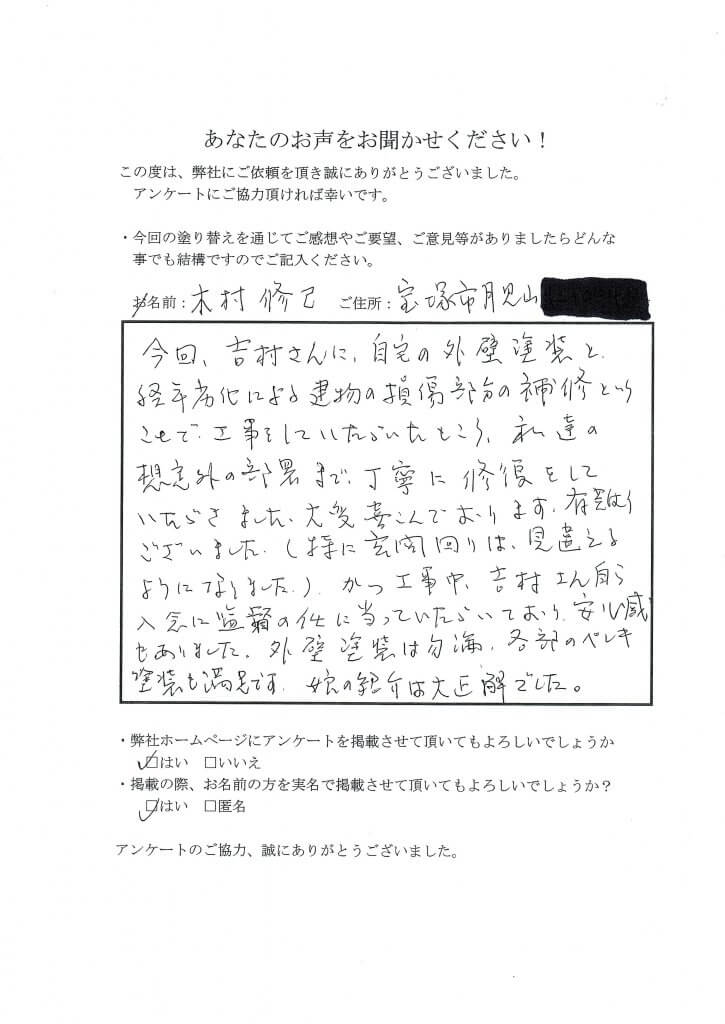 あなたのお声をお聞かせください！
この度は、弊社にご依頼を頂き誠にありがとうございました。
アンケートにご協力頂ければ幸いです。
・今回の塗り替えを通じてご感想やご要望、ご意見等がありましたらどんな
事でも結構ですのでご記入ください。
お名前：木村 修己 ご住所：宝塚市月見山
今回、吉村さんに、自宅の外壁塗装と、
経年劣化による建物の損傷部分の補修という
ことで、工事をしていただいたところ、私達の
想定外の部署まで、丁寧に修復をして
いただきました。大変喜こんでおります。有難う
ございました。（特に玄関回りは、見違える
ようになりました。）かつ工事中、吉村さん自ら
入念に監督の任に当っていただいており、安心感
もありました。外壁塗装は勿論、各部のペンキ
塗装も満足です。娘の紹介は大正解でした。
・弊社ホームページにアンケートを掲載させて頂いてもよろしいでしょうか
☑はい □いいえ
・掲載の際、お名前の方を実名で掲載させて頂いてもよろしいでしょうか？
☑はい □匿名
アンケートのご協力、誠にありがとうございました。